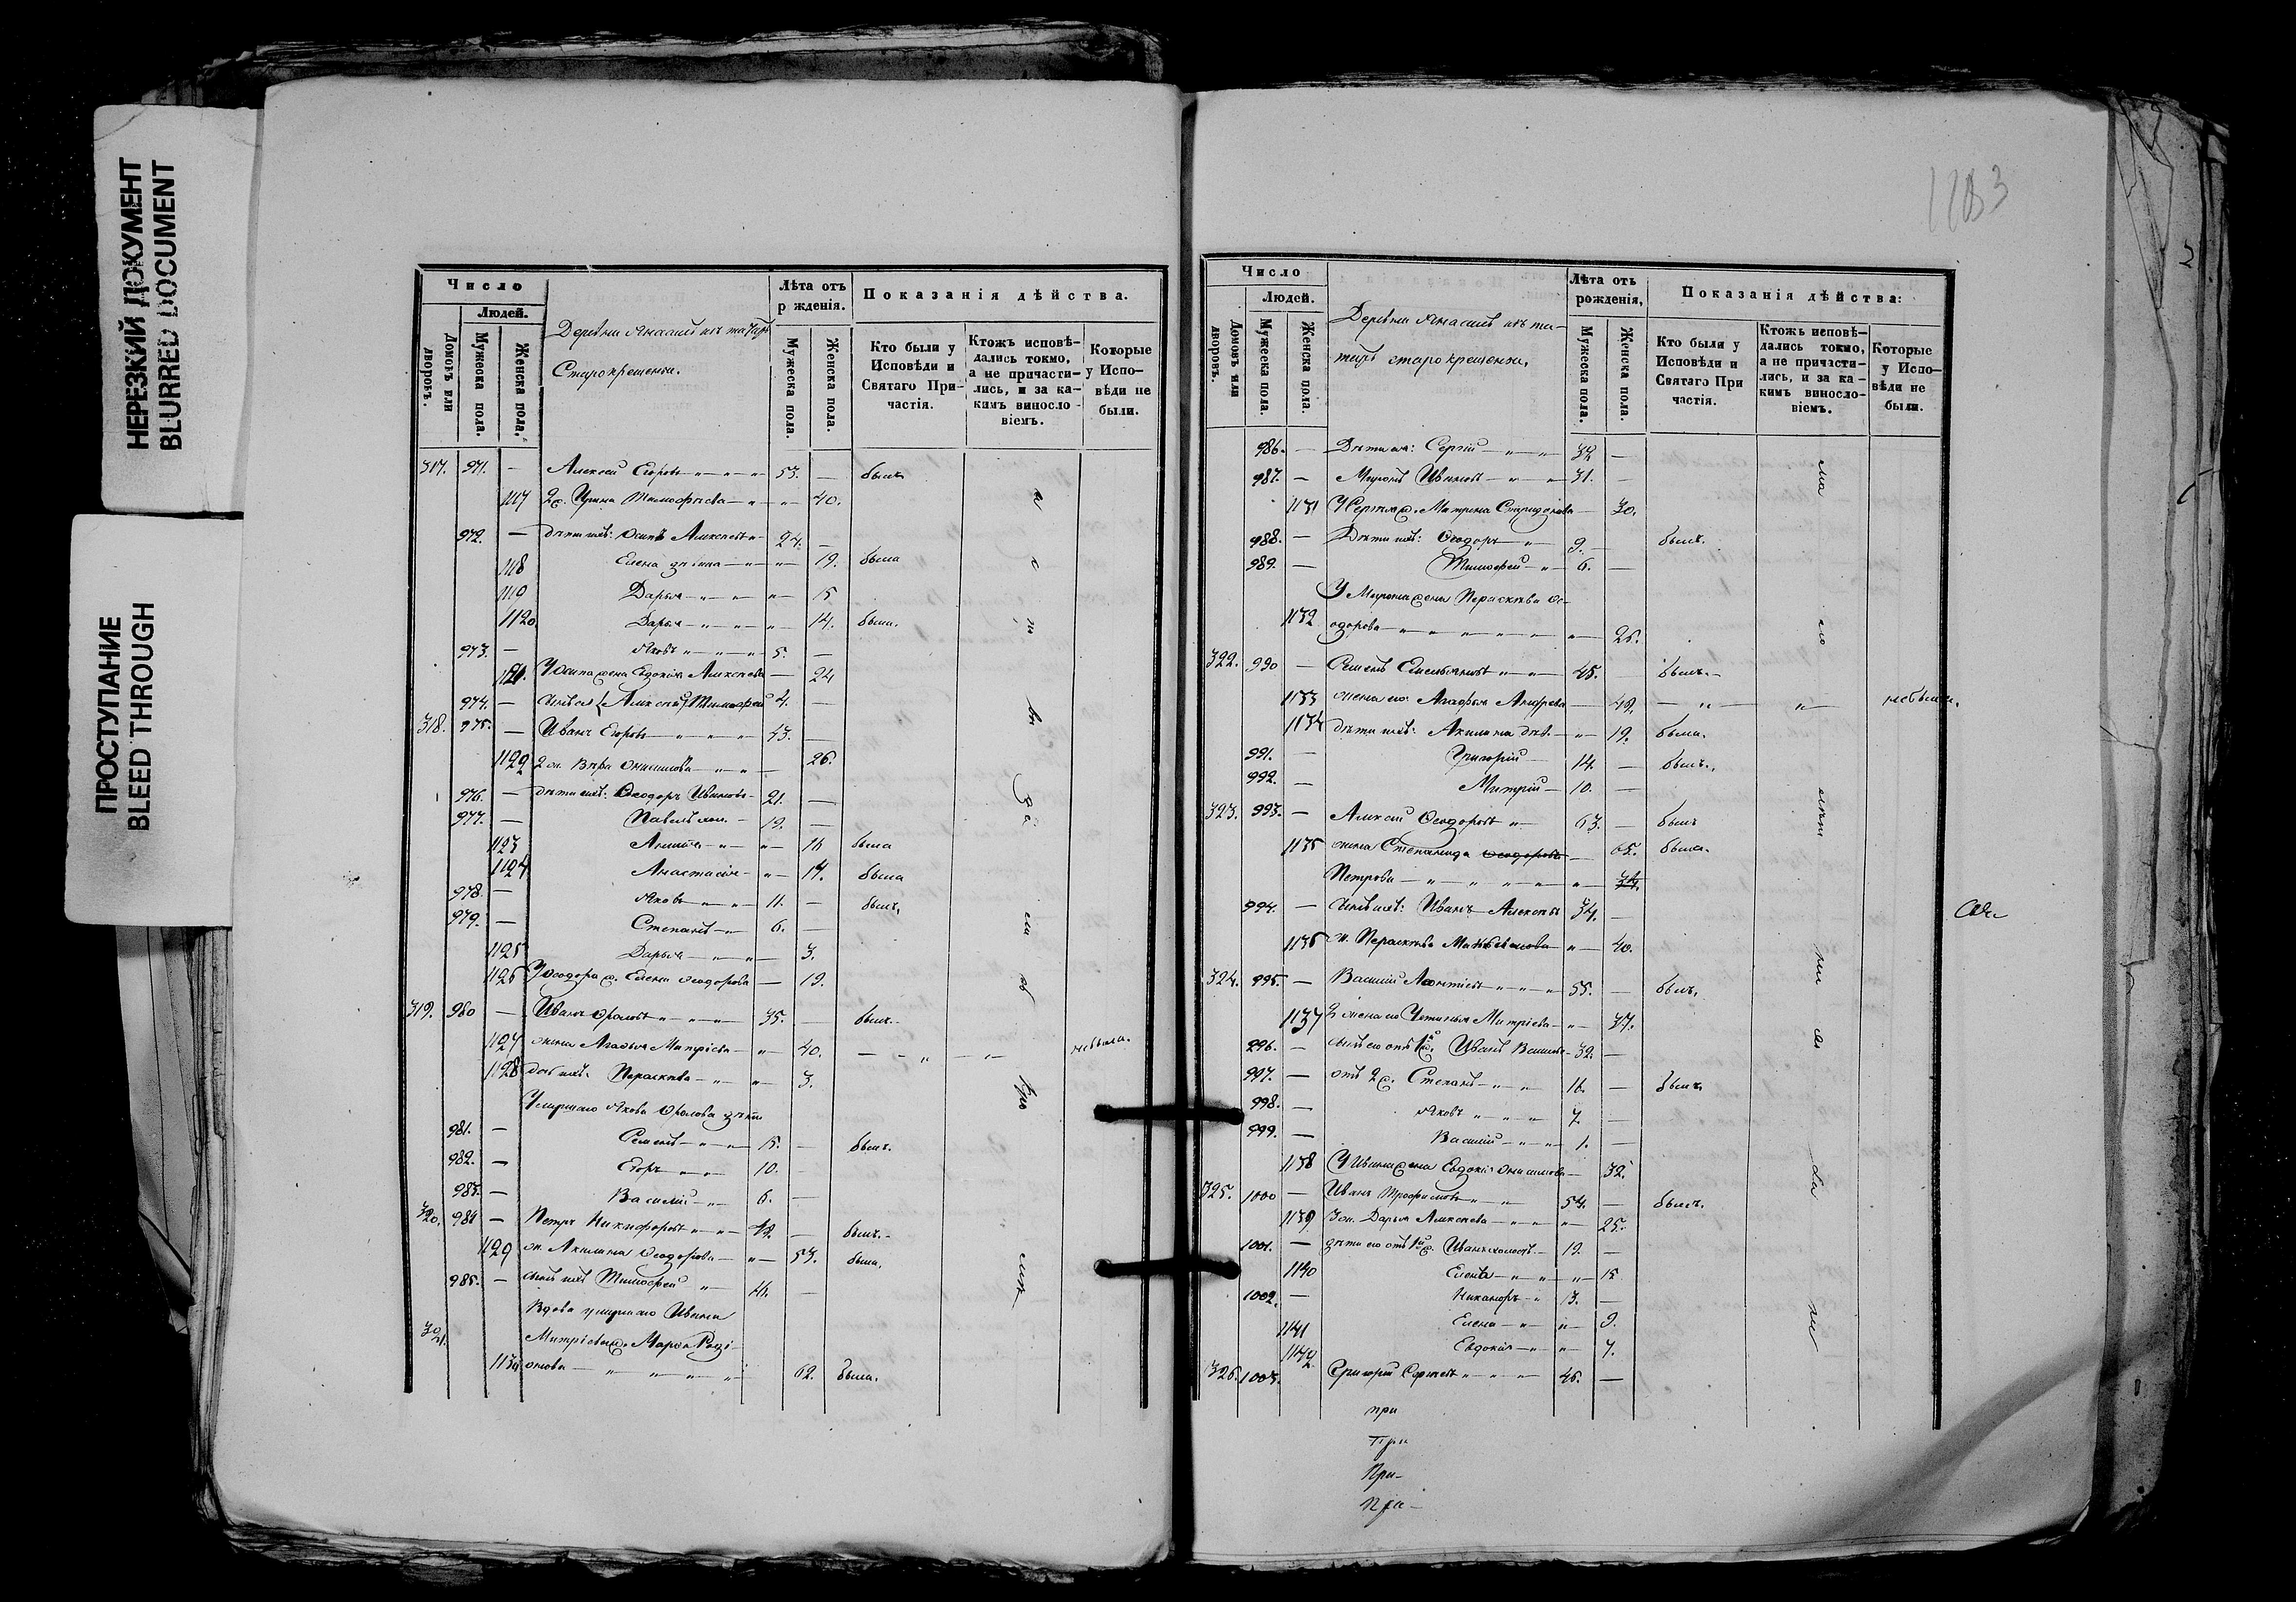 НЕРЕЗКИЙ ДОКУМЕНТ
BLURRED DOCUMENT
ПРОСТУПАНИЕ
BLEED THROUGH
Число
Людей.
Домовъ или дворовъ.
Мужеска пола.
Женска пола.
Старокрещены.
Лѣта отъ
р жденія.
Мужеска пола.
Женска пола.
Показанія дѣйства.
Кто были у
Исповѣди и
Святаго При-
частія.
Ктожъ исповѣ-
дались токмо,
а не причасти-
лись, и за ка-
кимъ винослo-
віемъ.
Которые
у Испо-
вѣди не
были.
317. 971. — Алексѣй Егоровъ 53. — былъ
1117 2ж. Ирина Тимофѣева 40.
972. — дѣти ихъ: Осипъ Алексѣевъ 24. —
1118 Елена 19. была
1119 Дарья 15
1120 Дарья 14. была.
973. — Яковъ 5. —
1121. У Осипа жена Евдокія Алексѣева — 24
974. — 4. —
318. 975. — Иванъ Егоровъ 43. —
1122 2 ж. Вѣра Онисимова 26.
976. — дѣти ихъ: Ѳеодоръ Ивановъ 21. —
977. — Павелъ 19. —
1123 16 была
1124 Анастасія 14. была
978. — Яковъ 11. — былъ,
979. — Степанъ 6. —
1125 Дарья 3.
1126 У Ѳеодора ж. Елена Ѳеодорова — 19.
319. 980 — Иванъ Фроловъ 35. — былъ.
1127 жена Агафья Митріева 40. небыла.
1128 Параскева 3.
Умершаго Якова Фролова дѣти
981. — Семенъ 15. — былъ.
982. — Егоръ 10. —
983. — Василій 6. —
320. 984 — Петръ Никифоровъ — былъ.
1129 ж. Акилина Ѳеодорова 53. была.
985. — сынъ ихъ Тимофей —
Вдова умершаго Ивана
321. Митріева ж. Марья Роді-
1130 онова 62. была.
1183
Число
Людей.
Домовъ или дворовъ.
Мужеска пола.
Женска пола.
старокрещены.
Лѣта отъ
рожденія,
Мужеска пола.
Женска пола.
Показанія дѣйства:
Кто были у
Исповѣди и
Святаго При
частія.
Ктожъ исповѣ-
дались токмо,
а не причасти-
лись, и за ка-
кимъ винослo-
віемъ.
Которые
у Испо-
вѣди не
были.
986. — Дѣти ея: Сергій 32 —
987. — Миронъ Ивановъ 31. —
1131 У Сергѣя ж. Матрена Спиридонова — 30.
988. — Дѣти ихъ: Ѳеодоръ 9. — былъ.
989. — Тимофей 6. —
У Мирона жена Параскева Ѳе-
1132 одорова 26.
322. 990 — Семенъ Емельяновъ 45. — былъ.
1133 жена его Агафья Андреева — 49. небыла.
1134 дѣти ихъ: Акилина 19. была.
991. — Григорій 14. — былъ.
992. — Митрій 10. —
323. 993. — Алексѣй Ѳеодоровъ 63. — былъ
1135 жена Степанида Ѳеодорова — 65. была.
Петрова
994. — сынъ ихъ: Иванъ Алексѣевъ 34. —
1136 ж. Параскева 40.
324. 995. — Василій Леонтіевъ 55. — былъ.
1137 2 жена его Устинья Митріева 37.
996. — сынъ его отъ 1й ж. Иванъ 32. —
997. — отъ 2 ж. Степанъ 16. — былъ
998. — Яковъ 7. —
999. — Василій 1. —
1138 У Ивана жена Евдокія Онисимова — 32.
325. 1000 — Иванъ Трофимовъ 54. — былъ.
1139 3 ж. Дарья Алексѣева 25.
1001. — дѣти его отъ 1й ж. Иванъ 19. —
1140 Елена 15
1002. — Никаноръ 13. —
1141 Елена 9.
1142 Евдокія 7.
326. 1003. Григорій Сергѣевъ 46. —
при
При
При-
При-